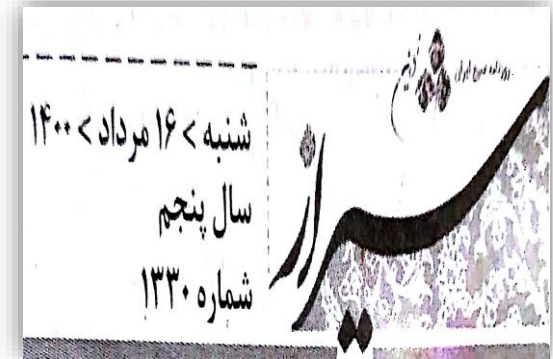 روزنامه صبح ایران
نوین
شیراز
شنبه > ۱۶ مرداد > ۱۴۰۰
سال پنجم
شماره ۱۳۳۰